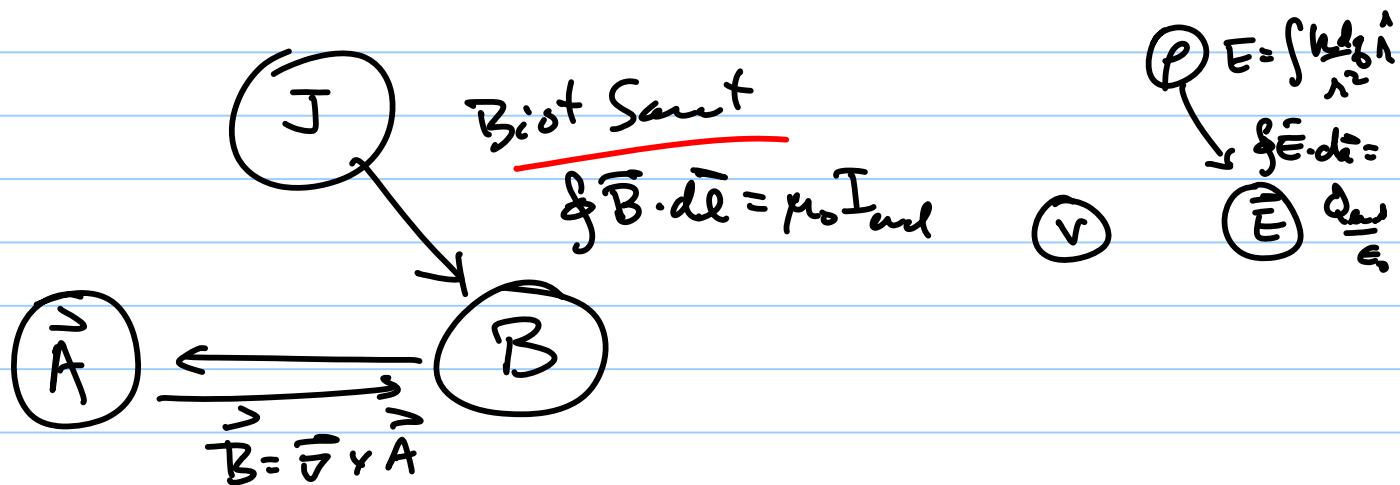 J
Biot Savart
∮ B̄ · dl̄ = μ₀ I encl
A⃗
B
B⃗ = ∇̄ × A⃗
ρ E = ∫ k dq / r² r̂
∮ Ē · dā =
V
Ē
Q encl / ε₀